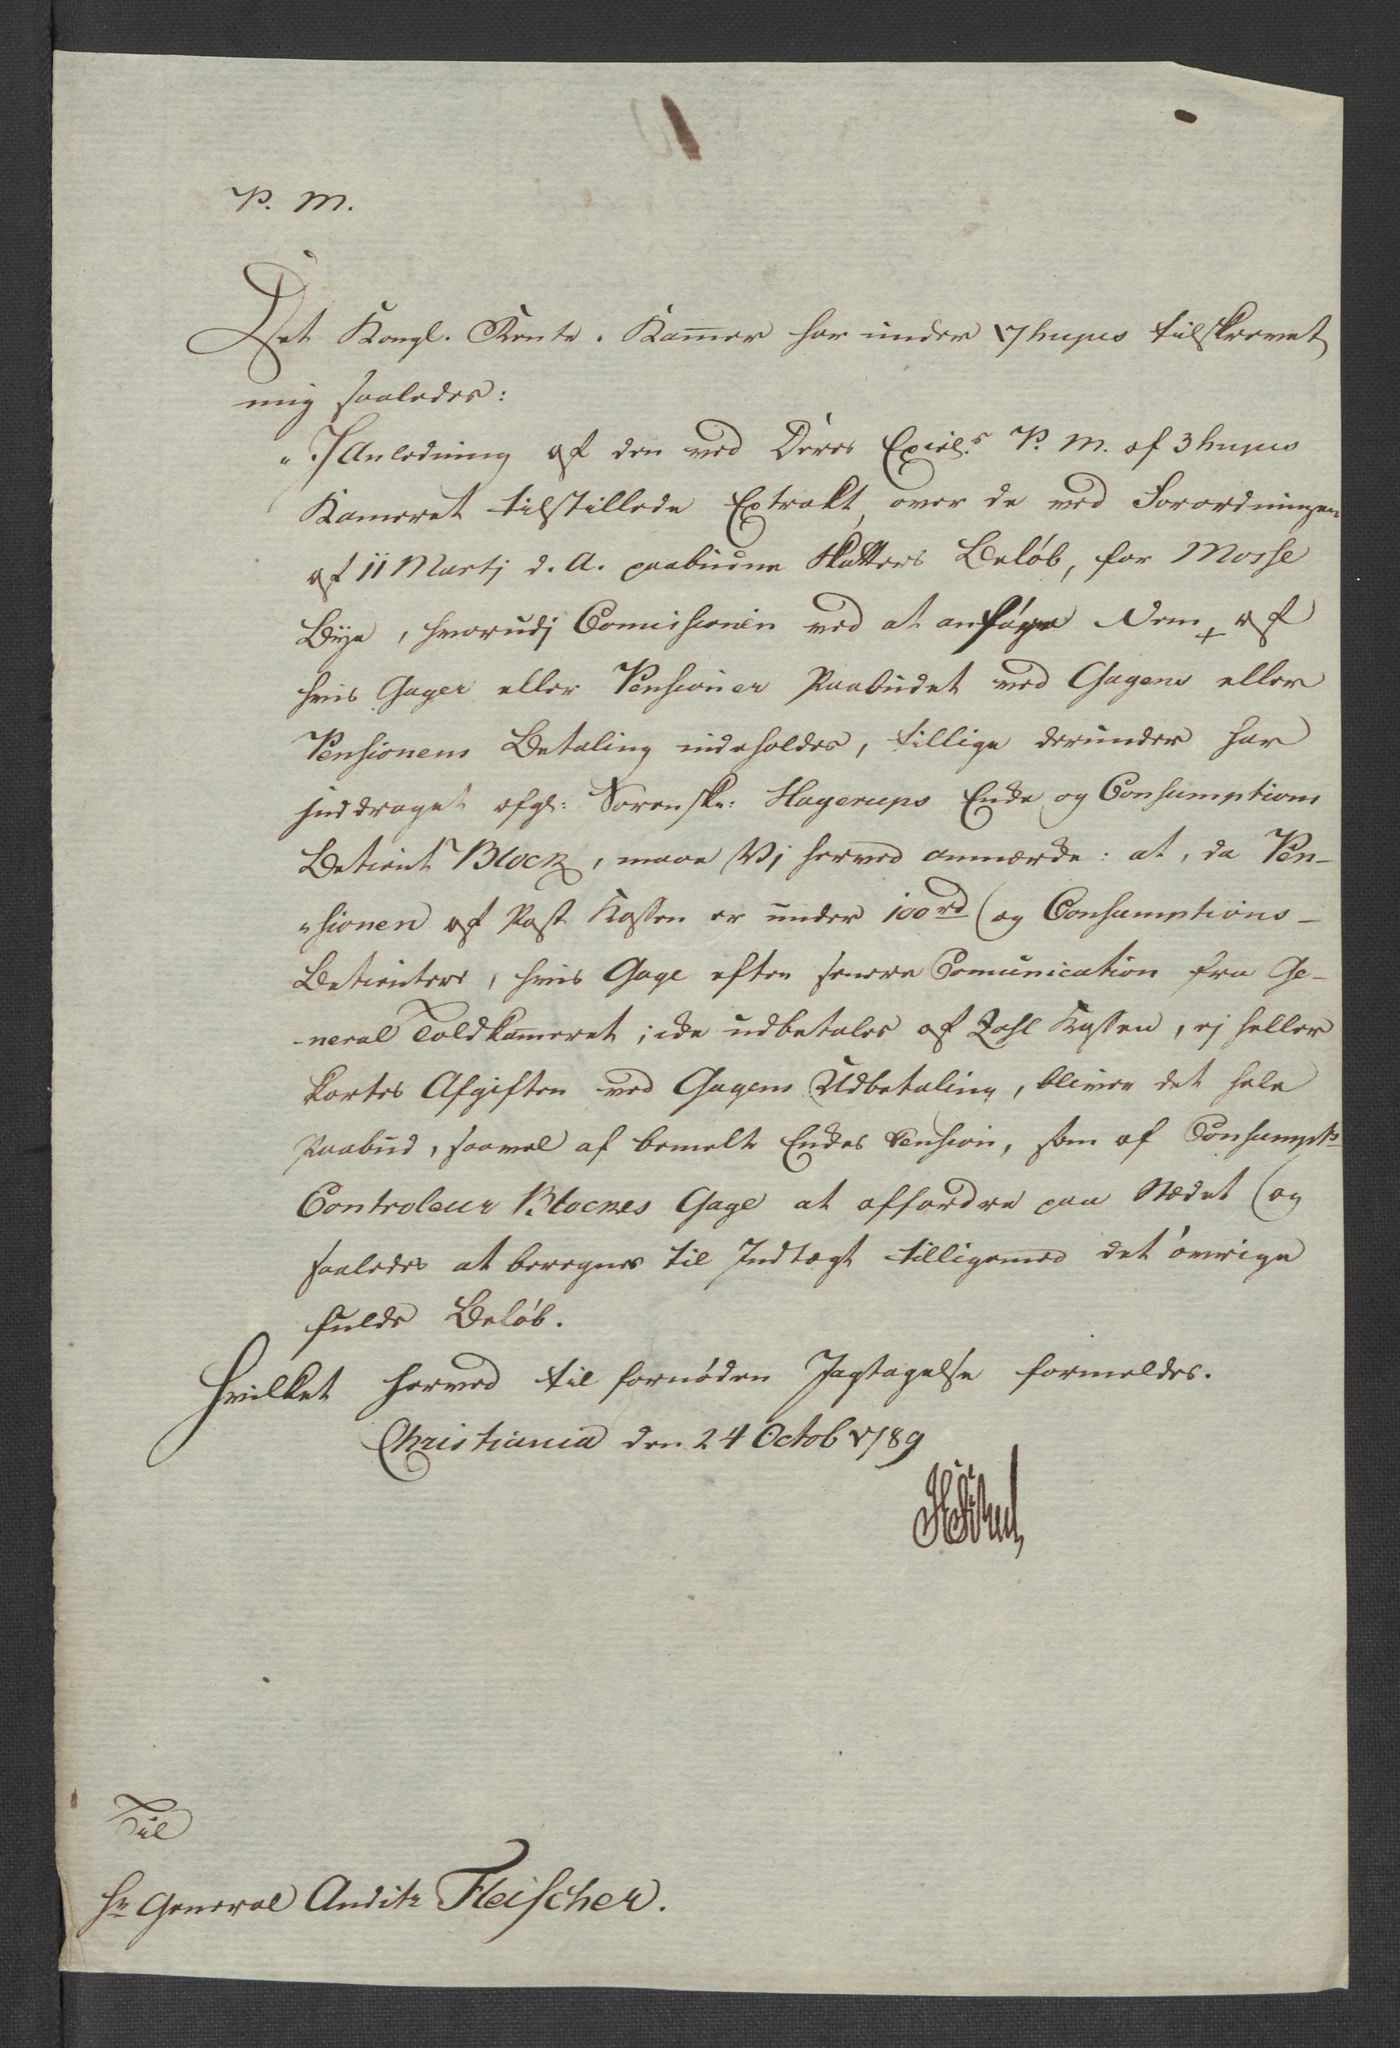 P. M.
Det Kongl. Rente-Kammer har under 17 hujus tilskrevet
mig saaledes:
"I Anledning af den ved Deres Excel.s P. M. af 3 hujus
Kameret tilstillede Extrakt, over de ved Forordningen
af 11 Martj d. A. paabudne Skatters Beløb, for Mosse
Bÿe, hvorudj Comissionen ved at anføre dem, af
hvis Gager eller Pensioner Paabudet ved Gagens eller
Pensionens Betaling indeholdes, tillige derunder har
inddraget afg: Sorenskr: Hagerups Enke og Consumptions
Betient Block, maae Vj herved anmærke: at, da Pen-
"sionen af Post Kassen er under 100 rd (og Consumptions-
Betientere, hvis Gage efter senere Comunication fra Ge-
-neral Toldkammeret, ikke udbetales af Zahl Kassen, ej heller
kortes Afgiften ved Gagens Udbetaling, bliver det hele
Paabud, saavel af bemelte Enkes Pension, som af Consumpts
Controleur Blockes Gage at affordre paa Stædet (og
saaledes at beregnes til Indtægt tilligemed det øvrige
fulde Beløb.
Hvilket herved til fornøden Jagtagelse formeldes.
Christiania den 24 Octob 1789
Til
Hr General Auditr Fleischer.